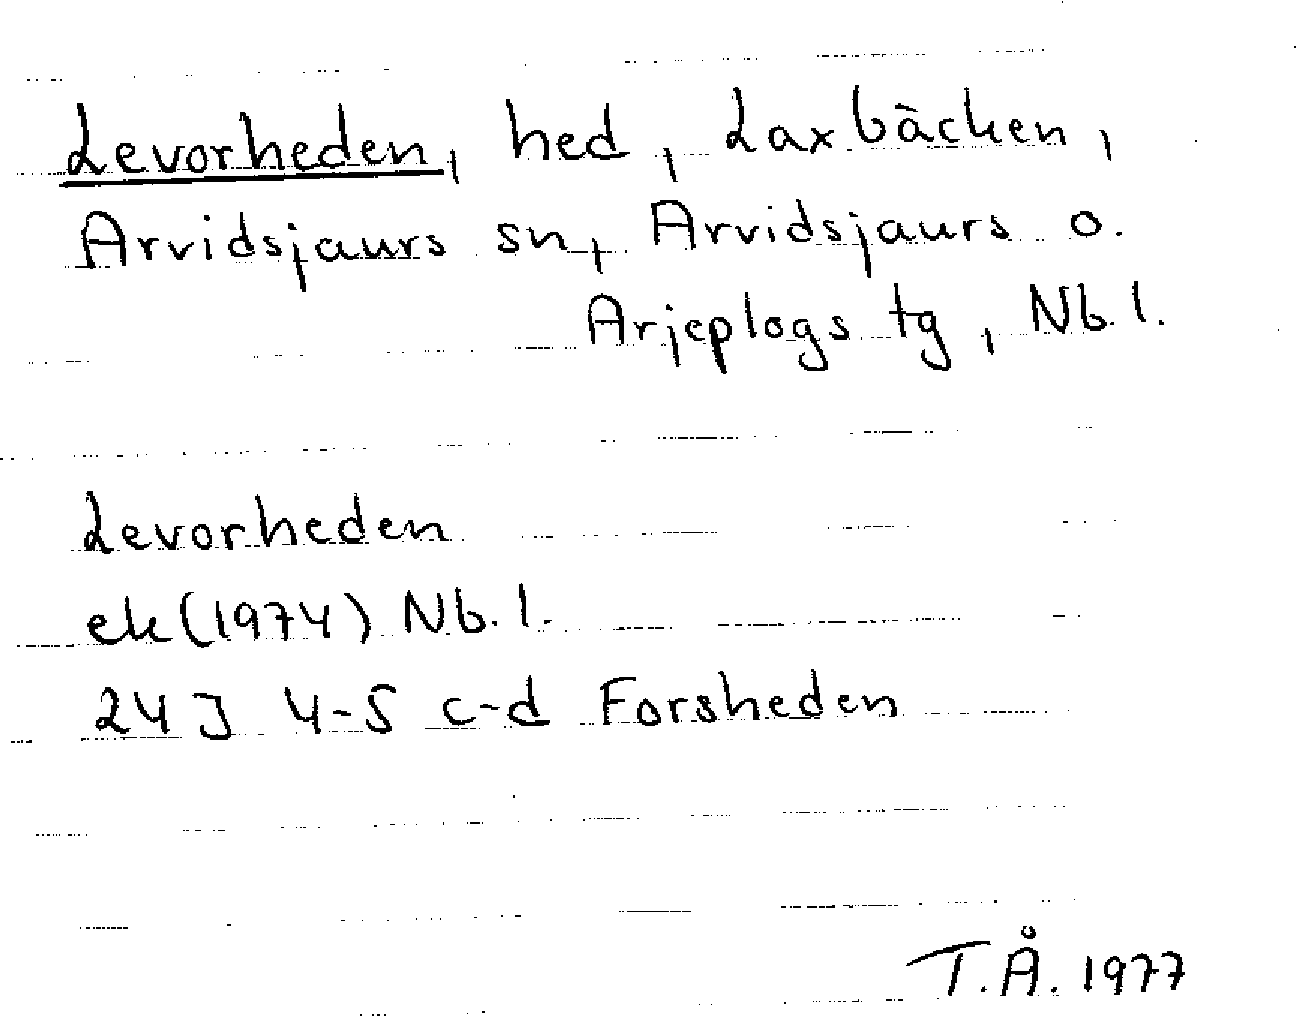 Levorheden, hed, Laxbäcken,
Arvidsjaurs sn, Arvidsjaurs o.
Arjeplogs tg, Nb. l.
Levorheden
ek (1974) Nb. l.
24 J 4-5 c-d Forsheden
T.Å. 1977